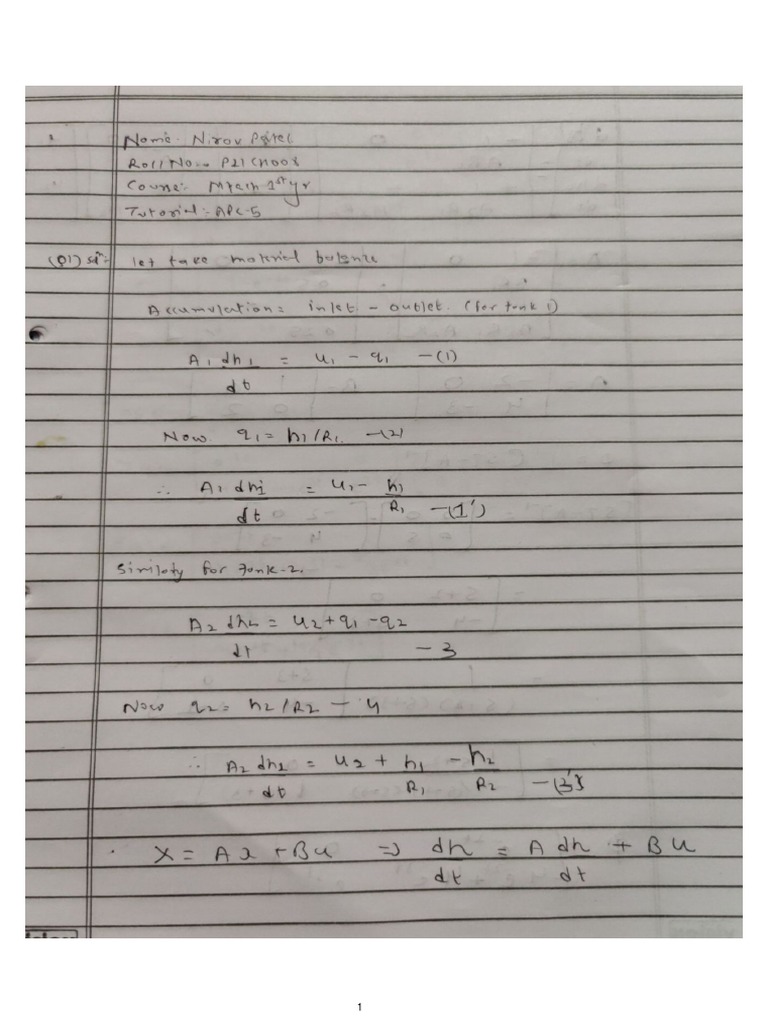 Name:- Nirav Patel
Roll No:- P21CH008
Course:- Mtech 1st yr
Tutorial:- APC-5
(Q1) solⁿ:- let take material balance
Accumulation = inlet - outlet. (for tank 1)
A₁ dh₁/dt = u₁ - q₁ -(1)
Now q₁ = h₁/R₁. -(2)
∴ A₁ dh₁/dt = u₁ - h₁/R₁ -(1')
Similaty for Tank-2.
A₂ dh₂/dt = u₂ + q₁ - q₂ - 3
Now q₂ = h₂/R₂ - 4
∴ A₂ dh₂/dt = u₂ + h₁/R₁ - h₂/R₂ -(3')
Ẋ = Ax + Bu ⇒ dh/dt = A dh/dt + Bu
1